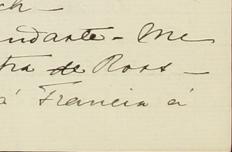 ch-
andante - Me
tra de Ross -
a Francia á